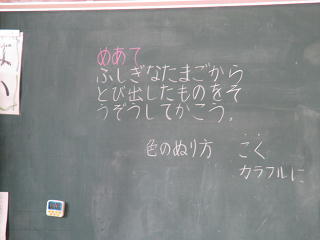 めあて
ふしぎなたまごから
とび出したものをそ
うぞうしてかこう。
色のぬり方　こく
カラフルに